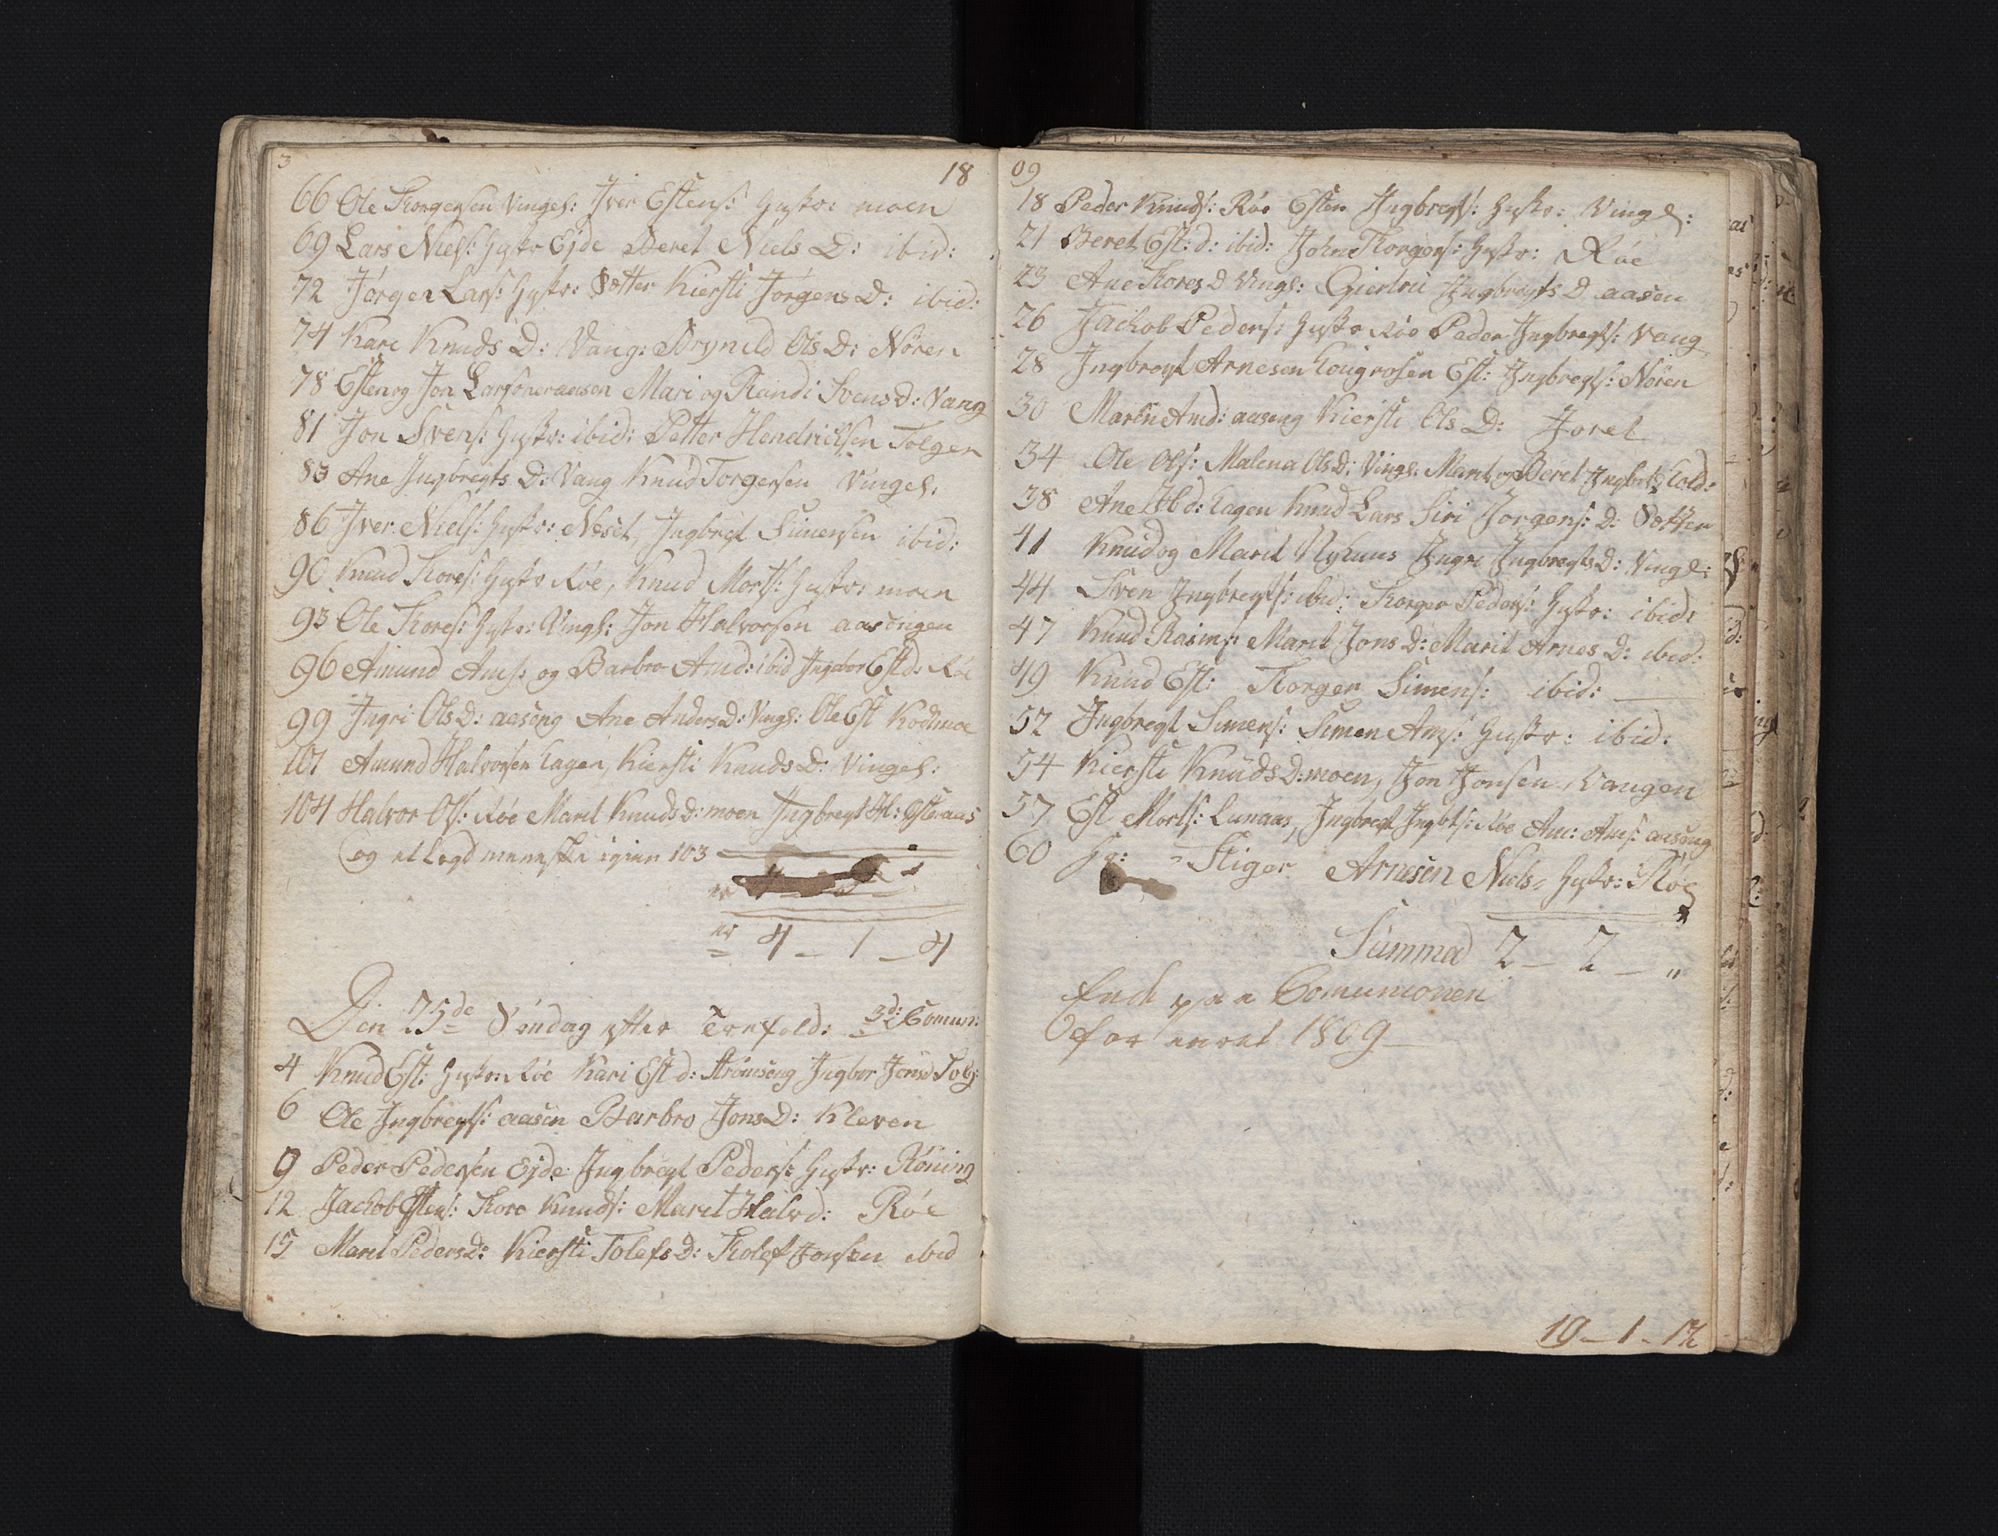 3 18
66 Ole Torgersen Vingel: Iver Estens: Hustr: moen
69 Lars Niels: Hustr Ejde Beret Niels D: ibid:
72 Jørgen Lars: Hustr: Sætter Kiersti Jørgens D: ibid:
74 Kari Knuds D: Vang: Brynild Ols D: Nøren
78 Esten og Jon Larsøneraasen Mari og Randi Svens D: Vang
81 Jon Svens: Hustr: ibid: Petter Hendrichsen Tolgen
83 Ane Ingbregts D: Vang Knud Torgersen Vingel:
86 Iver Niels: Hustr: Neset, Ingbregt Simensen ibid:
90 Knud Tores: Hustr Røe, Knud Morts: Hustr: moen
93 Ole Tores: Hustr: Vingl: Jon Halvorsen aasengen
96 Amund Ams: og Barbro Amd: ibid Ingebor Estd: Røe
99 Ingri Ols D: aaseng Ane Anders D: Vingl: Ole Est Kodtmoe
101 Amund Halvorsen Eagen, Kiersti Knuds D: Vingel:
104 Halvor Ols: Røe Marit Knuds D: moen Ingbregt Hl: Østeraas
og et Legd menneske igien 103
4 - 1 - 4
Den 15de Søndag efter Trefold: 3d: Comun:
4 Knud Est: Hustr: Røe Kari Est d: Strømseng Ingbor Jons d Tolg:
6 Ole Ingbregts: aasen Barbro Jons D: Kleven
9 Peder Pedersen Ejde Ingbregt Peders: Hustr: Røning
12 Jachob Estens: Tore Knuds: Marit Halvd: Røe
15 Marit Peders D: Kiersti Tolefs D: Tolef Jonsen ibid
09
18 Peder Knuds: Røe Esten Ingbregts: Hustr: Vingl:
21 Beret Est: d: ibid: John Torgers: Hustr: Røe
23 Ane Tores D Vingl: Giertru Ingbregts D aasen
26 Jachob Peders: Hustr Røe Peder Ingbregts: Vang
28 Ingbregt Arnesen Est: Ingbregts: Nøren
30 Marit Amd: aaseng Kiersti Ols D:
34 Ole Ols: Malena Ols D: Vingl: Marit og Beret Ingbrts D
38 Ane d: Eagen Knud Lars Siri Jørgens: D: Sætter
41 Knud og Marit Nyhuus Ingri Ingbregts D: Vingl:
44 Sven Ingbregts: ibid: Torger Peders: Hustr: ibid:
47 Knud Rasms: Marit Jons D: Marit Arnes D: ibid:
49 Knud Est: Torger Simens: ibid:
52 Ingbregt Simens: Simen Ams: Hustr: ibid:
54 Kiersti Knuds D: moen, Jon Jonsen Vangen
57 Est Morts: Lunaas, Ingbregt Ingbts: Røe Am: Ams: aaseng
60 Stiger Arnesen Niels Hustr: Røe
Summa 2 - 2 - "
End paa Comunionen
for aaret 1809
19 - 1 - 12